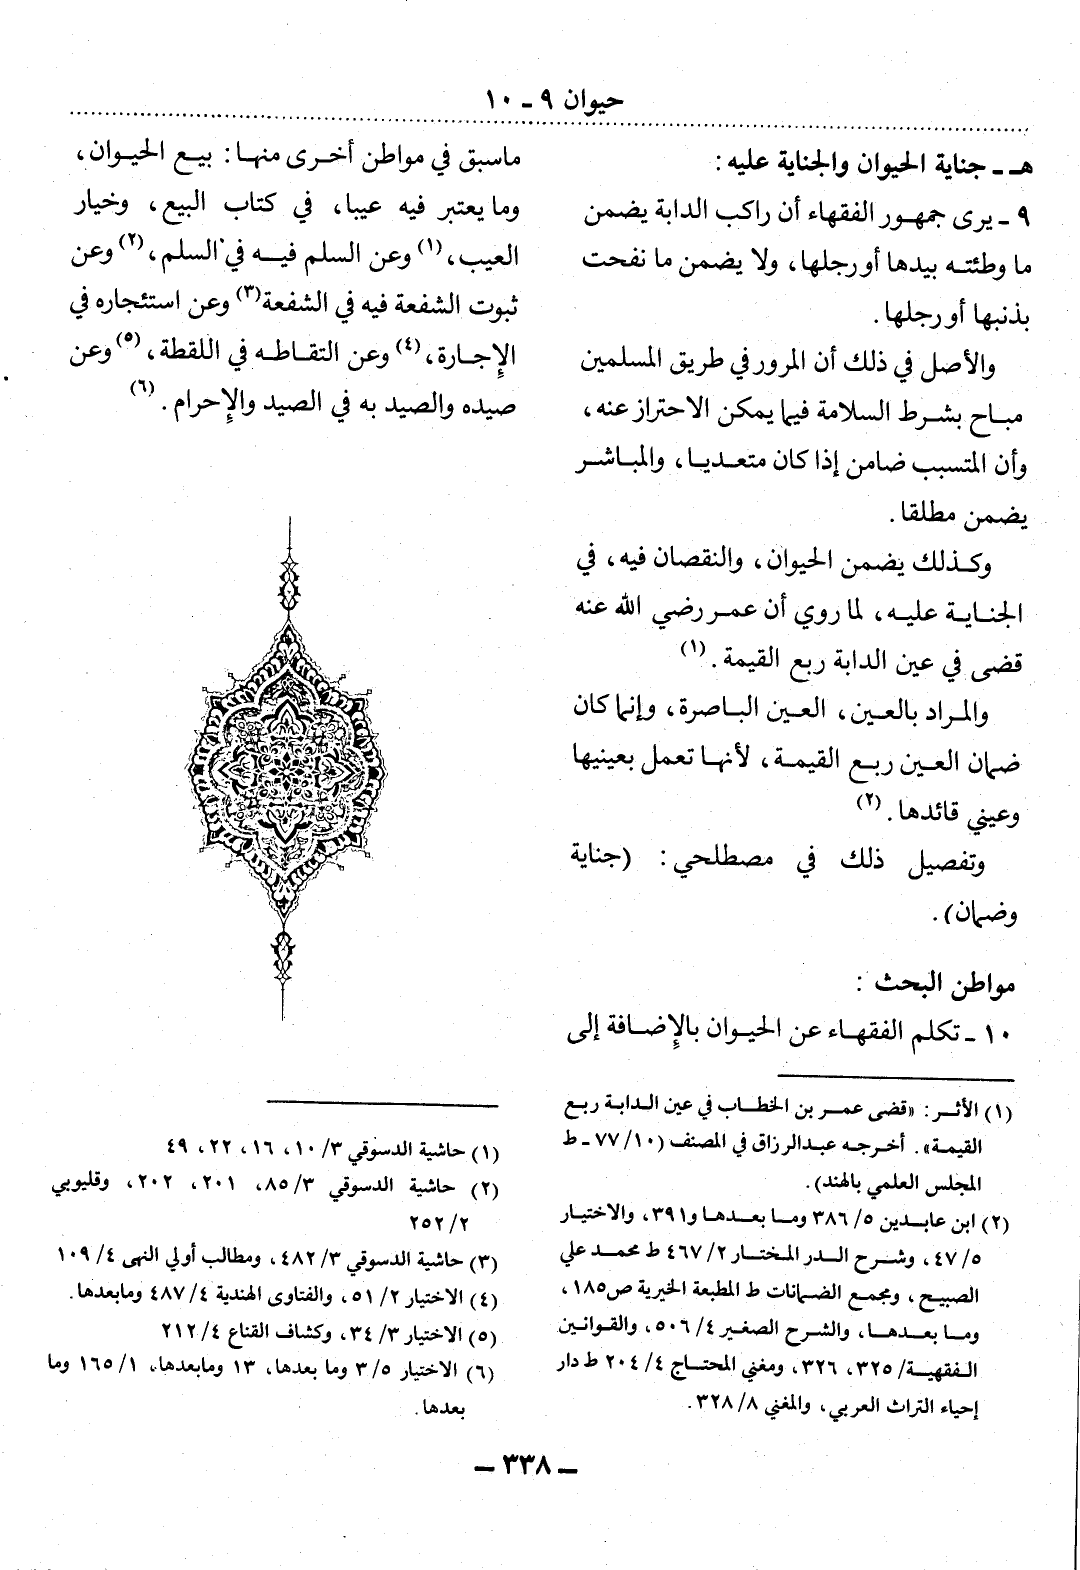 حيوان ٩ ـ ١٠
هـ ـ جناية الحيوان والجناية عليه :
٩ ـ يرى جمهور الفقهاء أن راكب الدابة يضمن
ما وطئته بيدها أو رجلها، ولا يضمن ما نفحت
بذنبها أو رجلها.
والأصل في ذلك أن المرور في طريق المسلمين
مباح بشرط السلامة فيما يمكن الاحتراز عنه،
وأن المتسبب ضامن إذا كان متعديا، والمباشر
يضمن مطلقا.
وكذلك يضمن الحيوان، والنقصان فيه، في
الجناية عليه، لما روي أن عمر رضي الله عنه
قضى في عين الدابة ربع القيمة. (١)
والمراد بالعين، العين الباصرة، وإنما كان
ضمان العين ربع القيمة، لأنها تعمل بعينيها
وعيني قائدها. (٢)
وتفصيل ذلك في مصطلحي: (جناية
وضمان).
مواطن البحث :
١٠ ـ تكلم الفقهاء عن الحيوان بالإضافة إلى
(١) الأثر: «قضى عمر بن الخطاب في عين الدابة ربع
القيمة». أخرجه عبدالرزاق في المصنف (١٠/ ٧٧ ـ ط
المجلس العلمي بالهند).
(٢) ابن عابدين ٥/ ٣٨٦ وما بعدها و٣٩١، والاختيار
٥/ ٤٧، وشرح الدر المختار ٢/ ٤٦٧ ط محمد علي
الصبيح، ومجمع الضمانات ط المطبعة الخيرية ص١٨٥،
وما بعدها، والشرح الصغير ٤/ ٥٠٦، والقوانين
الفقهية/ ٣٢٥، ٣٢٦، ومغني المحتاج ٤/ ٢٠٤ ط دار
إحياء التراث العربي، والمغني ٨/ ٣٢٨.
ماسبق في مواطن أخرى منها: بيع الحيوان،
وما يعتبر فيه عيبا، في كتاب البيع، وخيار
العيب، (١) وعن السلم فيه في السلم، (٢) وعن
ثبوت الشفعة فيه في الشفعة (٣) وعن استئجاره في
الإجارة، (٤) وعن التقاطه في اللقطة، (٥) وعن
صيده والصيد به في الصيد والإحرام. (٦)
(١) حاشية الدسوقي ٣/ ١٠، ١٦، ٢٢، ٤٩
(٢) حاشية الدسوقي ٣/ ٨٥، ٢٠١، ٢٠٢، وقليوبي
٢/ ٢٥٢
(٣) حاشية الدسوقي ٣/ ٤٨٢، ومطالب أولي النهى ٤/ ١٠٩
(٤) الاختيار ٢/ ٥١، والفتاوى الهندية ٤/ ٤٨٧ ومابعدها.
(٥) الاختيار ٣/ ٣٤، وكشاف القناع ٤/ ٢١٢
(٦) الاختيار ٥/ ٣ وما بعدها، ١٣ ومابعدها، ١/ ١٦٥ وما
بعدها.
ـ ٣٣٨ ـ